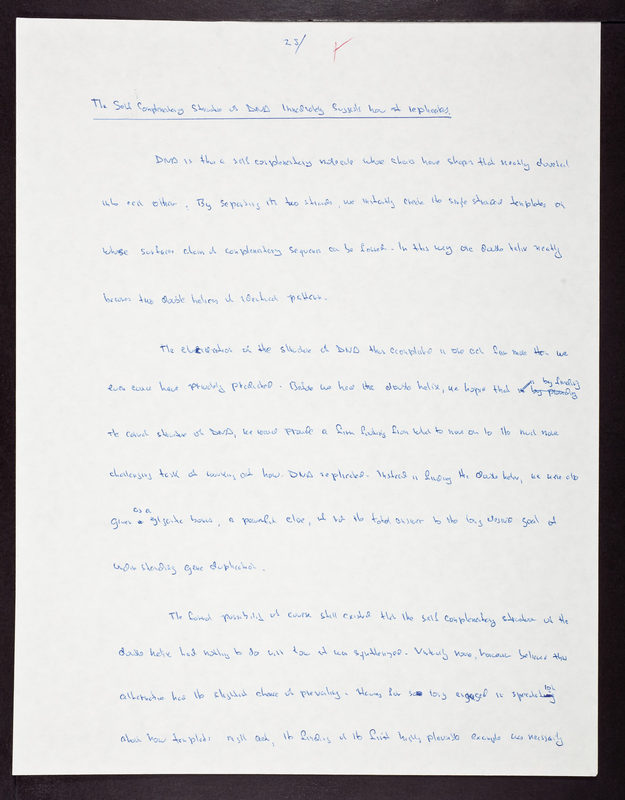 25/
The Self Complementary Structure of DNA Immediately Suggests how it replicates.
DNA is thus a self complementary molecule whose chains have shapes that neatly dovetail
into each other. By separating its two strands, we instantly create the single stranded templates on
whose surfaces chains of complementary sequences can be formed. In this way one double helix neatly
becomes two double helices of identical pattern.
The elucidation of the structure of DNA thus accomplished in one act far more than we
ever could have privately predicted. Before we had the double helix, we hoped that by finding
the correct structure of DNA, we would provide a firm footing from which to move on to the much more
challenging task of working out how DNA replicated. Instead in finding the double helix, we were also
given as a bonus, a powerful clue, if not the total answer to the long desired goal of
understanding gene duplication.
The formal possibility of course still existed that the self complementary structure of the
double helix had nothing to do with how it was synthesized. Virtually none, however believed this
alternative had the slightest chance of prevailing. Having for so long engaged in
about how templates might act, the finding of the first highly plausible example was necessarily